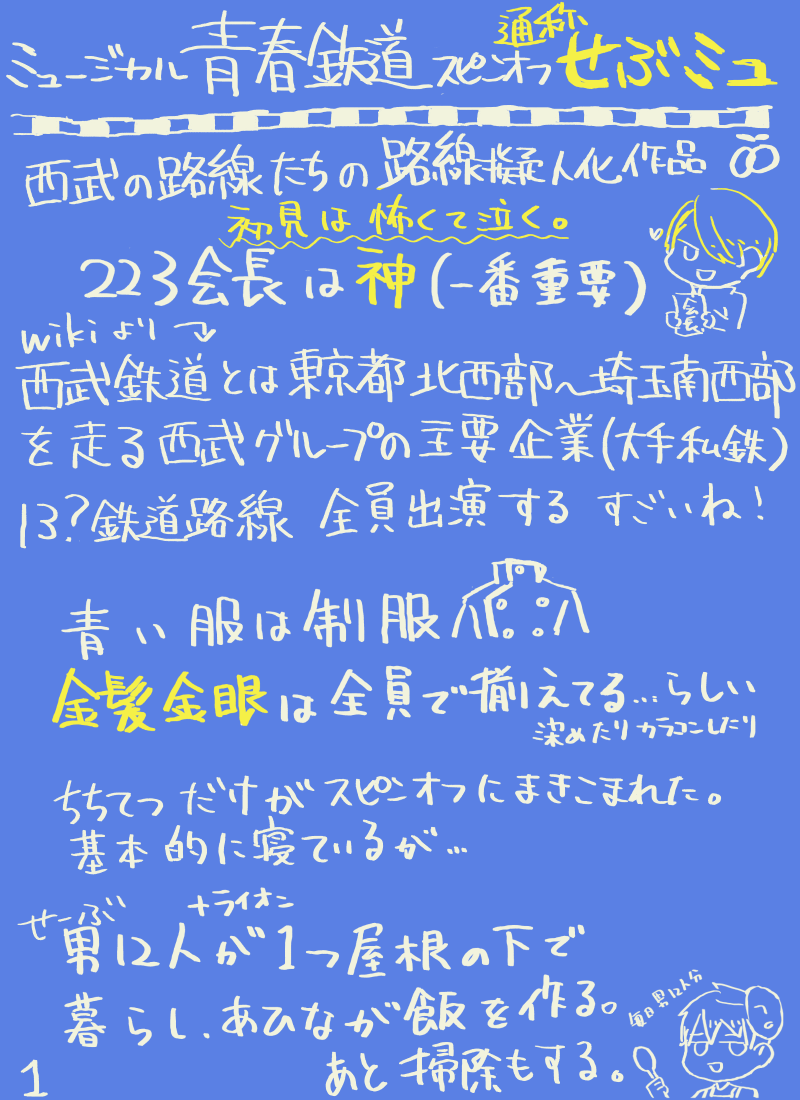 通称
ミュージカル青春鉄道スピンオフせぶミュ
西武の路線たちの路線擬人化作品
初見は怖くて泣く。
223会長は神(一番重要)
会長
wikiより
西武鉄道とは東京都北西部~埼玉南西部
を走る西武グループの主要企業(大手私鉄)
13?鉄道路線 全員出演する すごいね!
青い服は制服
金髪金眼は全員で揃えてる...らしい
染めたりカラコンしたり
ちちてつだけがスピンオフにまきこまれた。
基本的に寝ているが...
せーぶ +ライオン
男12人が1つ屋根の下で
暮らし、あひなが飯を作る。
毎日男12人分
あと掃除もする。
1